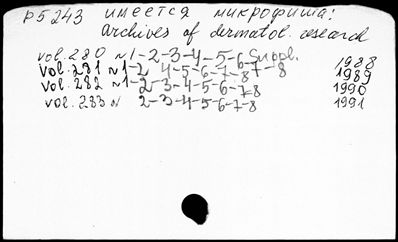 P5243 имеется микрофиша:
Archives of dermatol. research
vol. 280 N1-2-3-4-5-6 Suppl. 1988
vol. 281 N1-2 4-5-6-7-8 1989
vol. 282 N1-2-3-4-5-6-7-8 1990
vol. 283 N 2-3-4-5-6-7-8 1991